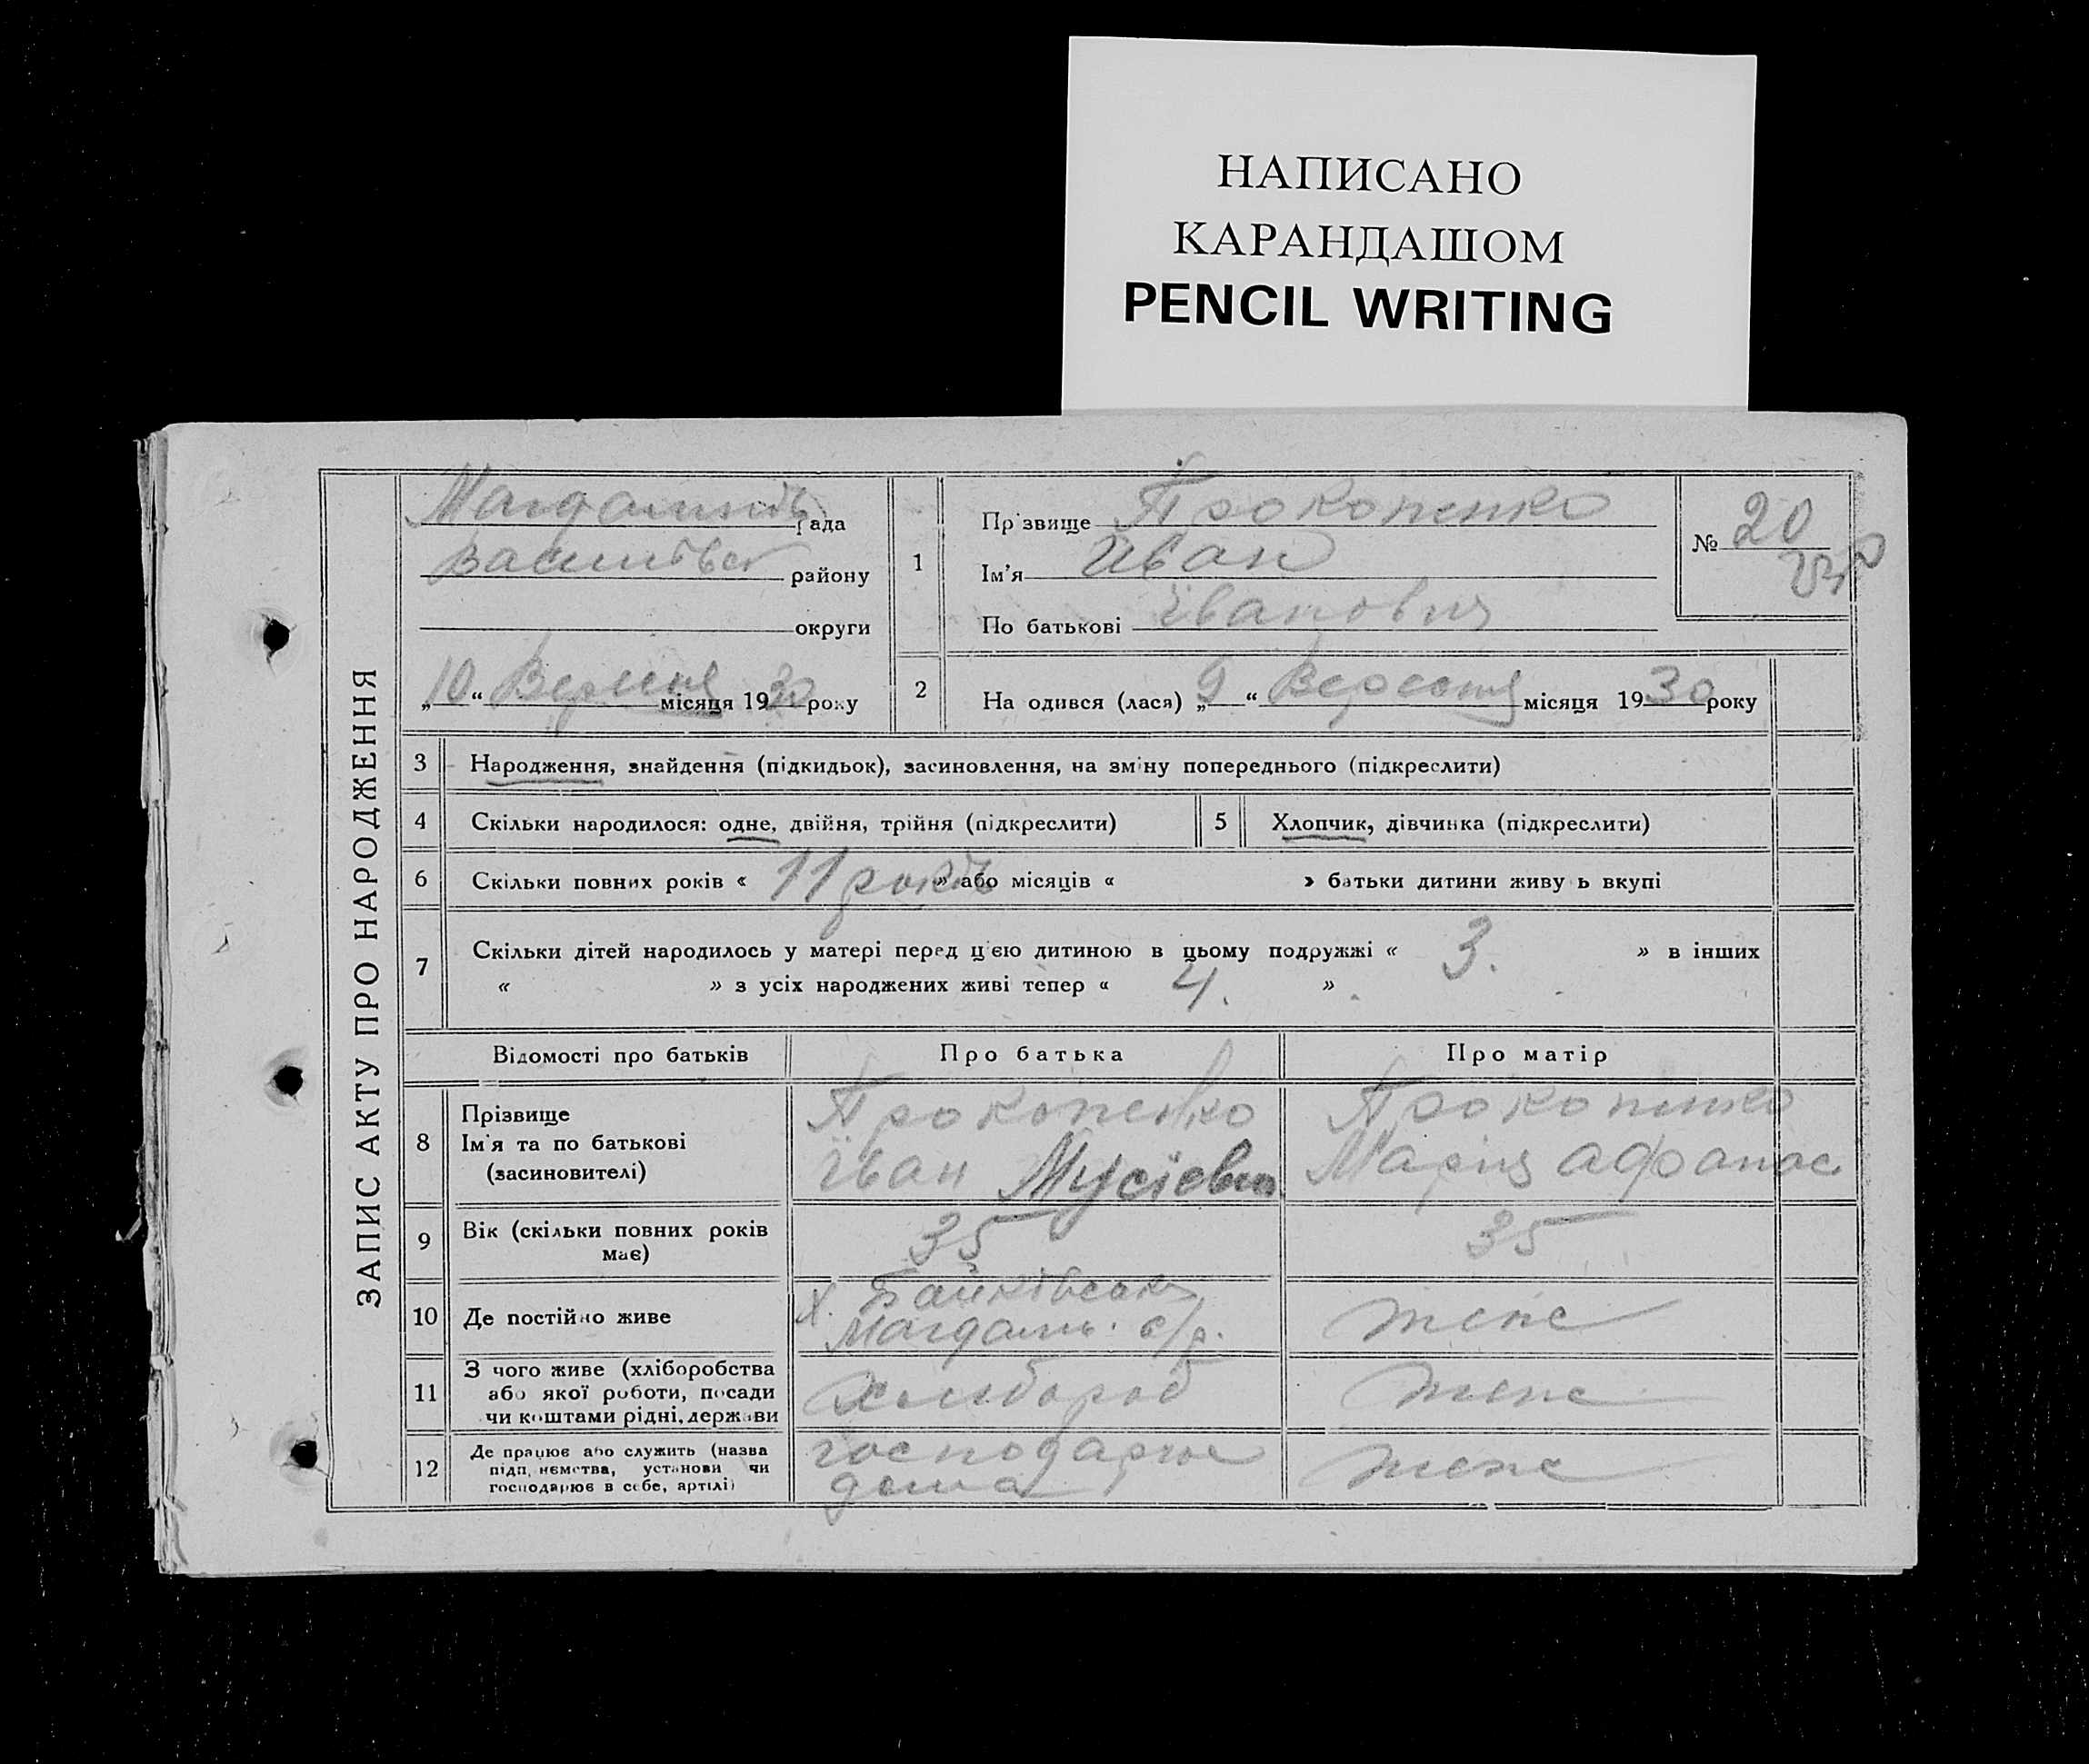 НАПИСАНО
КАРАНДАШОМ
PENCIL WRITING
ЗАПИС АКТУ ПРО НАРОДЖЕННЯ
рада
району
округи
„10“ Вересня місяця 1930 року
1
Прізвище Прокопенко
Ім'я Иван
По батькові Іванович
№ 20
2
На одився (лася) „9“ Вересня місяця 1930 року
3 Народження, знайдення (підкидьок), засиновлення, на зміну попереднього (підкреслити)
4 Скільки народилося: одне, двійня, трійня (підкреслити)
5 Хлопчик, дівчинка (підкреслити)
6 Скільки повних років « 11 років » або місяців « » батьки дитини живу ь вкупі
7 Скільки дітей народилось у матері перед цією дитиною в цьому подружжі « 3. » в інших
« » з усіх народжених живі тепер « 4. »
Відомості про батьків Про батька Про матір
8 Прізвище
Ім'я та по батькові
(засиновителі)
Прокопенко
Іван Мусієвич
Прокопенко
Марія Афанас
9 Вік (скільки повних років
має)
35
35
10 Де постійно живе
х. Байківськ
Магдалин. с/р.
теж
11 З чого живе (хліборобства
або якої роботи, посади
чи коштами рідні, держави
Хлібороб
теж
12 Де працює або служить (назва
підп, нємства, установи чи
господарює в себе, артілі)
господарює
дома
теж